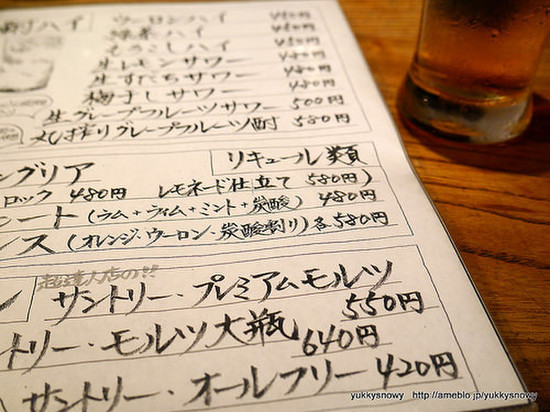 酎ハイ
ウーロンハイ 450円
緑茶ハイ 450円
生レモンサワー 480円
生すだちサワー 480円
梅干しサワー 480円
生グレープフルーツサワー 500円
搾りグレープフルーツ酎 580円
ングリア
リキュール類
ロック 480円 レモネード仕立て 580円)
ート (ラム+ライム+ミント+炭酸) 480円
ンス (オレンジ・ウーロン・炭酸割り) 各580円
超達人店の!!
サントリー・プレミアムモルツ
550円
ントリー・モルツ大瓶 640円
サントリー・オールフリー 420円
yukkysnowy http://ameblo.jp/yukkysnowy